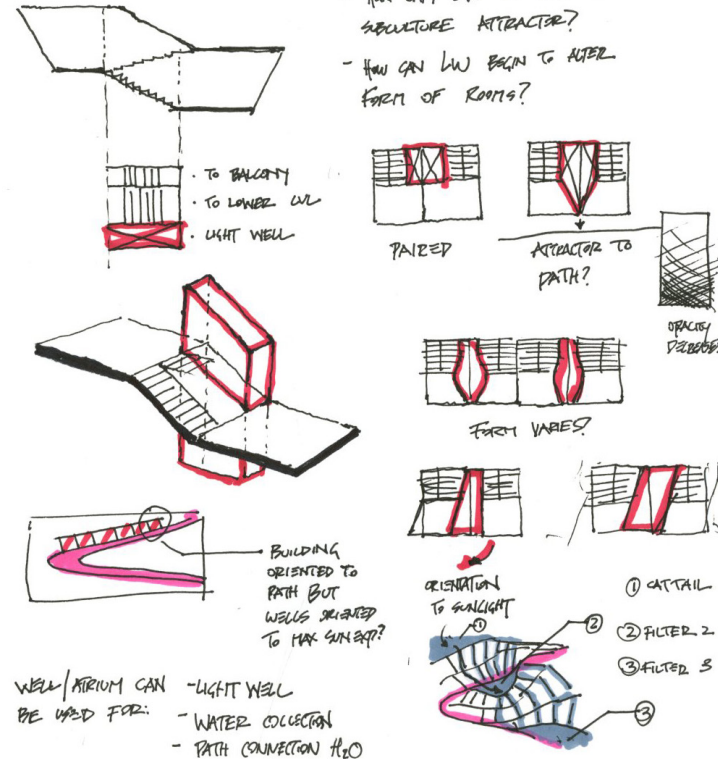 SUBCULTURE ATTRACTOR?
- HOW CAN LW BEGIN TO ALTER
FORM OF ROOMS?
· TO BALCONY
· TO LOWER LVL
· LIGHT WELL
PAIRED
ATTRACTOR TO
PATH?
OPACITY
DECREASES
FORM VARIES?
· BUILDING
ORIENTED TO
PATH BUT
WELLS ORIENTED
TO MAX SUN EXP?
ORIENTATION
TO SUNLIGHT
① CATTAIL
② FILTER 2
③ FILTER 3
①
②
③
WELL/ATRIUM CAN
BE USED FOR:
- LIGHT WELL
- WATER COLLECTION
- PATH CONNECTION H₂O